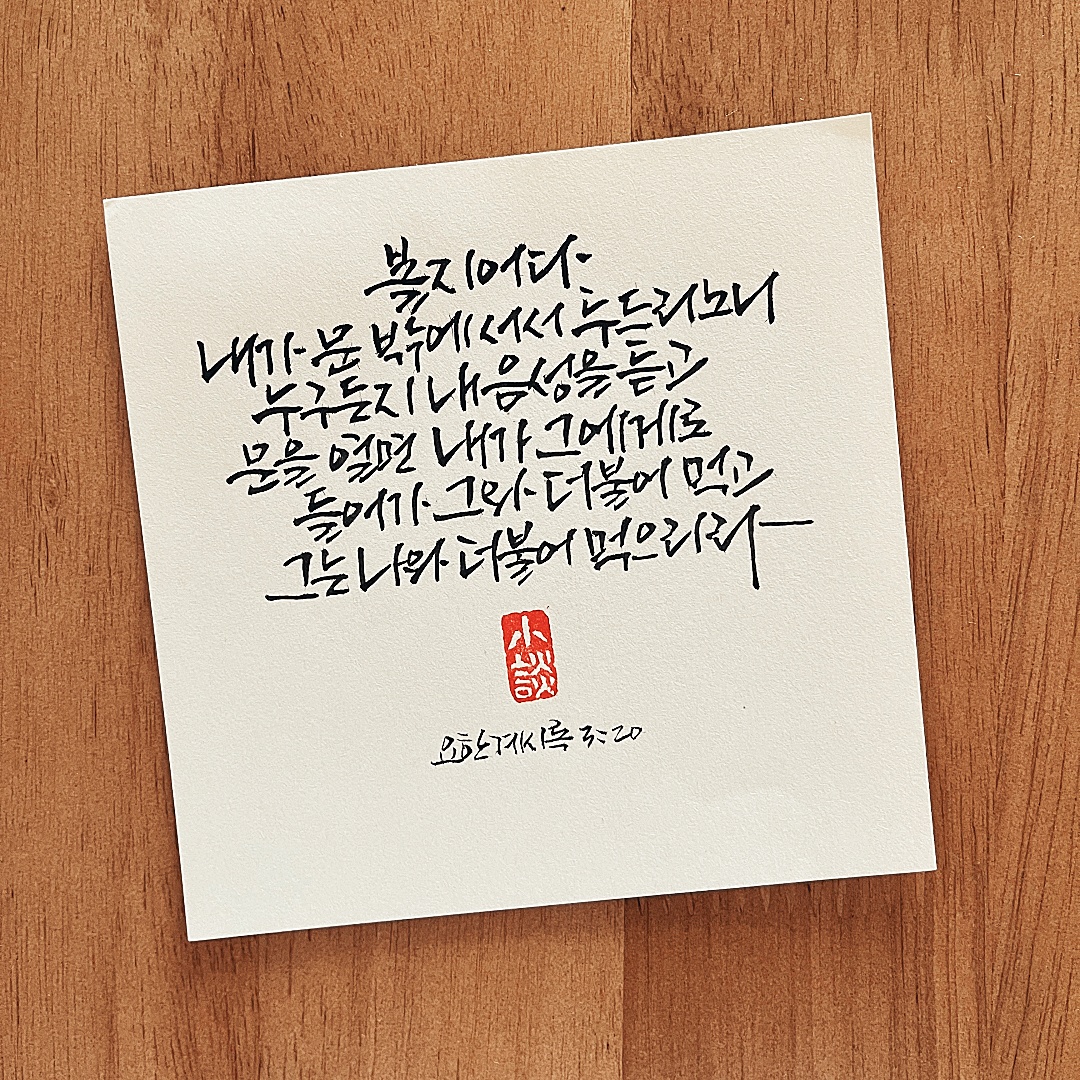 볼지어다
내가 문 밖에 서서 두드리노니
누구든지 내 음성을 듣고
문을 열면 내가 그에게로
들어가 그와 더불어 먹고
그는 나와 더불어 먹으리라
小談
요한계시록 3:20